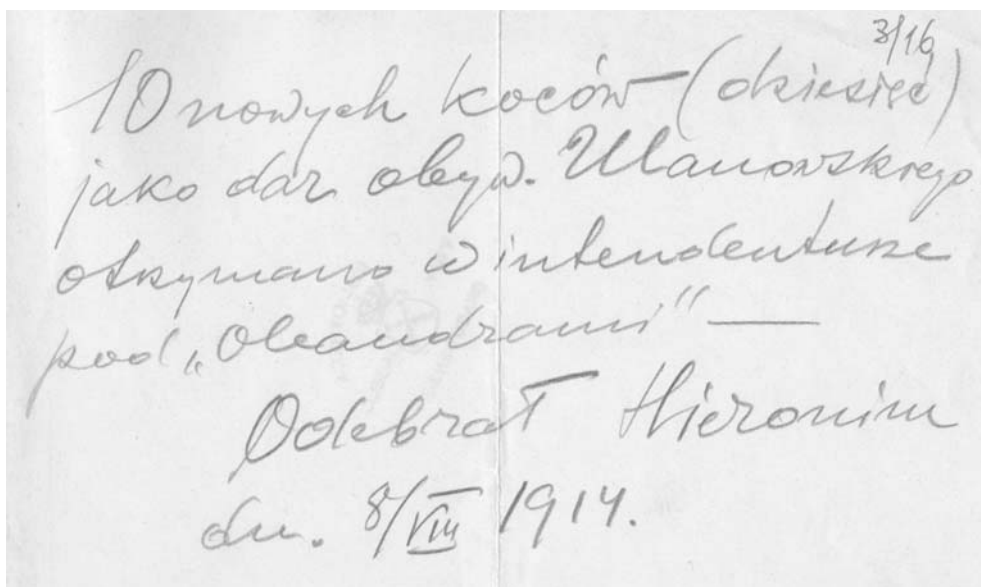 3/16
10 nowych koców (dziesięć)
jako dar obyw. Ulanowskiego
otrzymano w intendenturze
pod „Oleandrami" —
Odebrał Hieronim
dn. 8/VIII 1914.